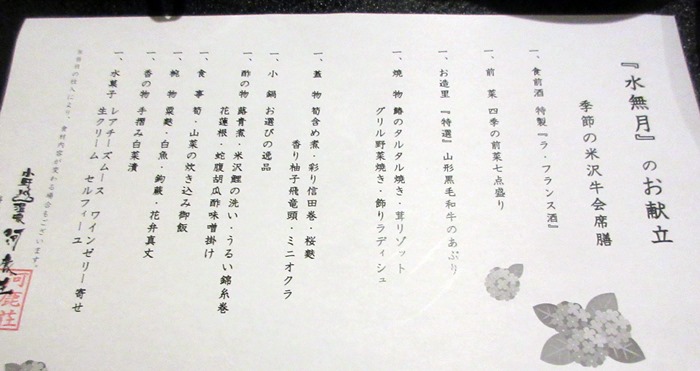 『水無月』のお献立
季節の米沢牛会席膳
一、食前酒 特製『ラ・フランス酒』
一、前菜 四季の前菜七点盛り
一、お造里 『特選』山形黒毛和牛のあぶり
一、焼物 鰆のタルタル焼き・茸リゾット
グリル野菜焼き・飾りラディシュ
一、蓋物 筍含め煮・彩り信田巻・桜麩
香り柚子飛竜頭・ミニオクラ
一、小鍋 お選びの逸品
一、酢の物 蕗青煮・米沢鯉の洗い・うるい錦糸巻
花蓮根・蛇腹胡瓜酢味噌掛け
一、食事 筍・山菜の炊き込み御飯
一、椀物 粟麩・白魚・鉤蕨・花弁真丈
一、香の物 手摺み白菜漬
一、水菓子 レアチーズムース ワインゼリー寄せ
生クリーム セルフィーユ
当日の仕入により、食材内容が変わる場合もございます。
河鹿荘